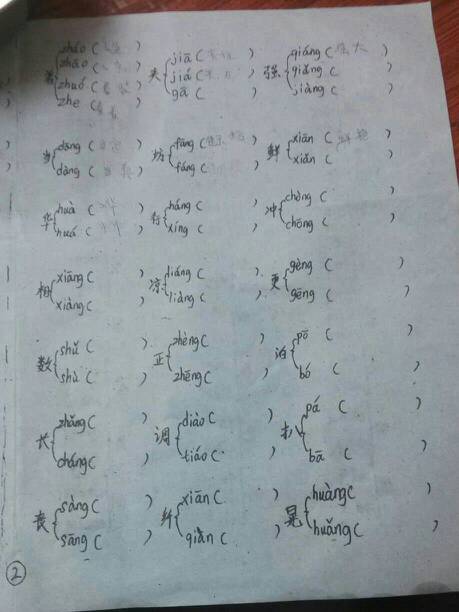 zháo ( ) jiā ( ) qiáng (强大)
zhāo ( )
着 夹 jiá ( ) 强 qiǎng ( )
zhuó ( )
zhe ( ) gā ( ) jiàng ( )
dāng ( ) fāng ( ) xiān (鲜艳)
当 坊 鲜
dàng ( ) fáng ( ) xiǎn ( )
huà ( ) háng ( ) chòng ( )
华 行 冲
huá ( ) xíng ( ) chōng ( )
xiāng ( ) liáng ( ) gèng ( )
相 凉 更
xiàng ( ) liàng ( ) gēng ( )
shǔ ( ) zhèng ( ) pō ( )
数 正 泊
shù ( ) zhēng ( ) bó ( )
zhǎng ( ) diào ( ) pá ( )
长 调 扒
cháng ( ) tiáo ( ) bā ( )
sàng ( ) xiān ( ) huàng ( )
丧 纤 晃
sāng ( ) qiàn ( ) huǎng ( )
②